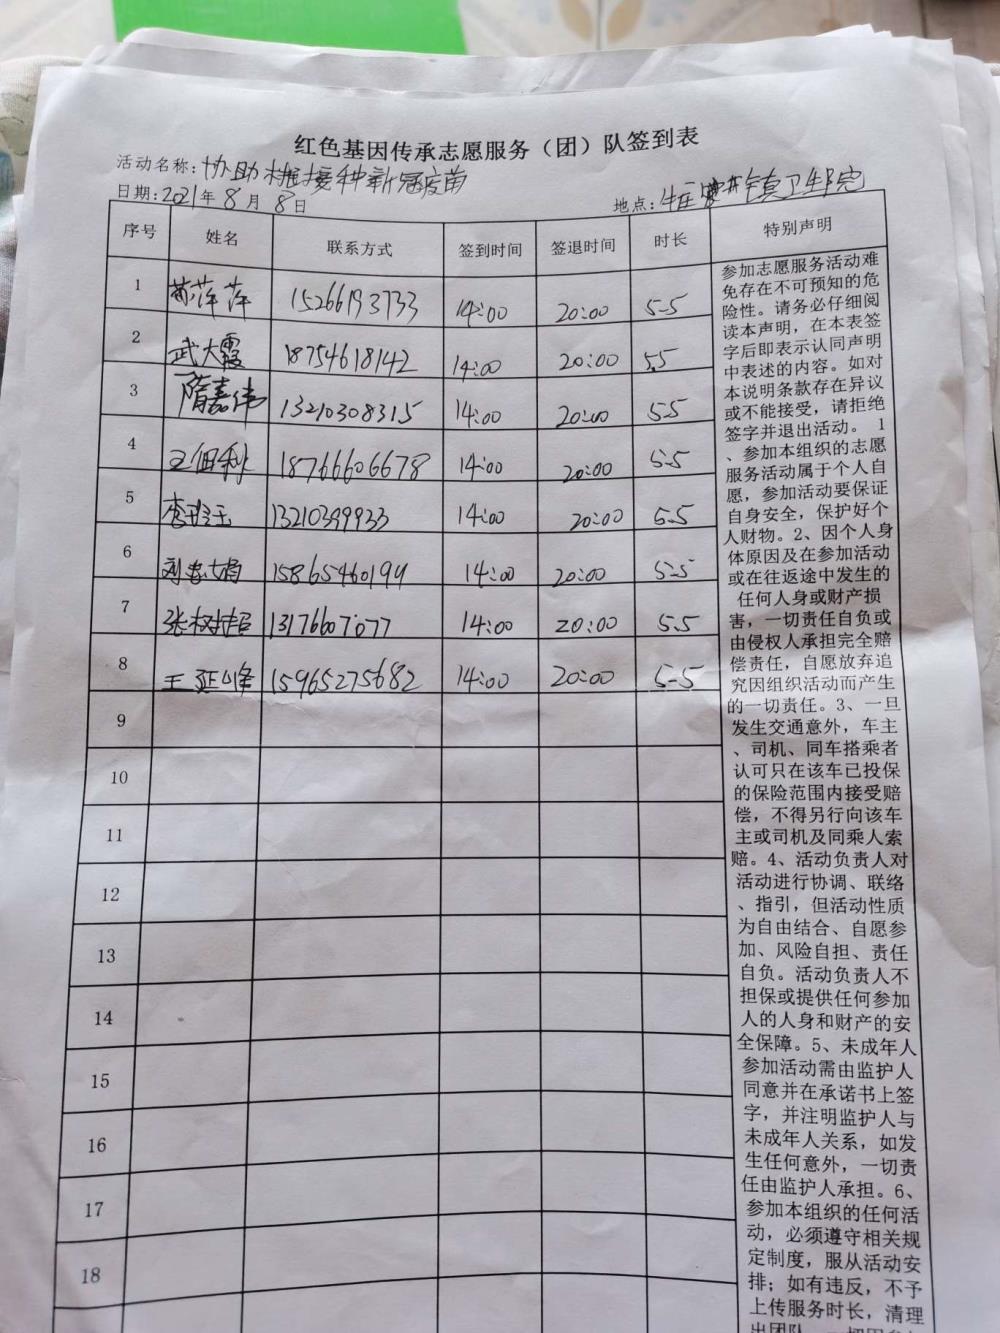 红色基因传承志愿服务（团）队签到表
活动名称：协助 接种新冠疫苗
日期：2021年8月8日 地点： 镇卫生院
序号 姓名 联系方式 签到时间 签退时间 时长 特别声明
1 15266193733 14:00 20:00 5.5
2 武大霞 18754618142 14:00 20:00 5.5
3 隋嘉伟 13210308315 14:00 20:00 5.5
4 18766606678 14:00 20:00 5.5
5 13210399933 14:00 20:00 5.5
6 15865460199 14:00 20:00 5.5
7 13176607077 14:00 20:00 5.5
8 王延峰 15965275682 14:00 20:00 5.5
9
10
11
12
13
14
15
16
17
18
参加志愿服务活动难
免存在不可预知的危
险性。请务必仔细阅
读本声明，在本表签
字后即表示认同声明
中表述的内容。如对
本说明条款存在异议
或不能接受，请拒绝
签字并退出活动。 1
、参加本组织的志愿
服务活动属于个人自
愿，参加活动要保证
自身安全，保护好个
人财物。2、因个人身
体原因及在参加活动
或在往返途中发生的
任何人身或财产损
害，一切责任自负或
由侵权人承担完全赔
偿责任，自愿放弃追
究因组织活动而产生
的一切责任。3、一旦
发生交通意外，车主
、司机、同车搭乘者
认可只在该车已投保
的保险范围内接受赔
偿，不得另行向该车
主或司机及同乘人索
赔。4、活动负责人对
活动进行协调、联络
、指引，但活动性质
为自由结合、自愿参
加、风险自担、责任
自负。活动负责人不
担保或提供任何参加
人的人身和财产的安
全保障。5、未成年人
参加活动需由监护人
同意并在承诺书上签
字，并注明监护人与
未成年人关系，如发
生任何意外，一切责
任由监护人承担。6、
参加本组织的任何活
动，必须遵守相关规
定制度，服从活动安
排；如有违反，不予
上传服务时长，清理
出团队